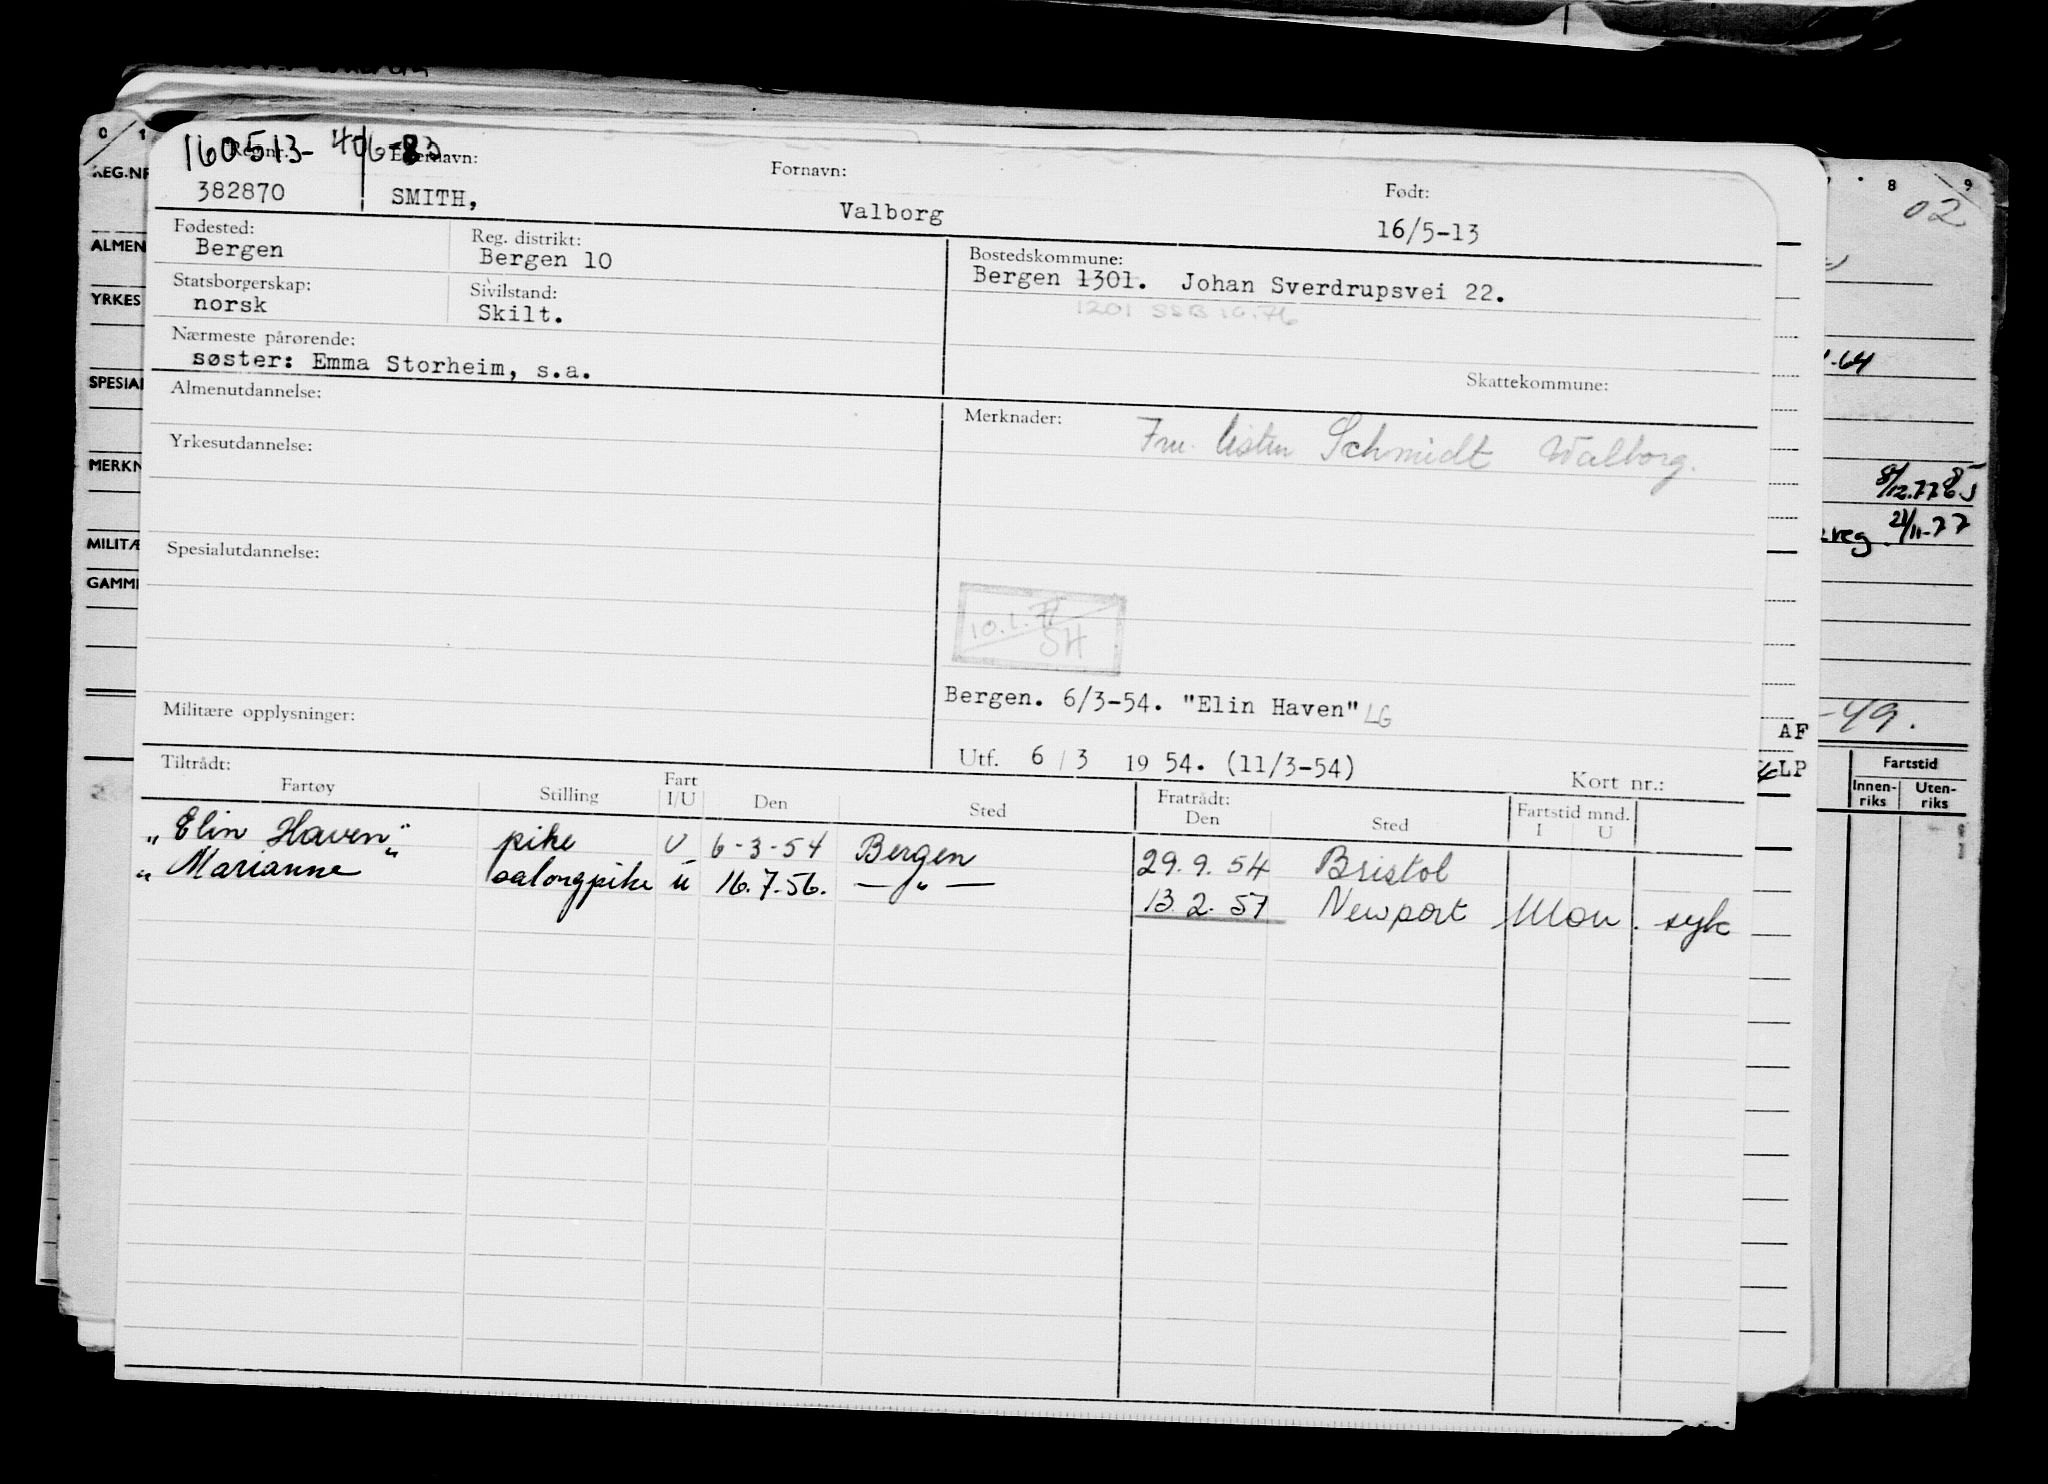 160513-
Reg.nr. Etternavn: Fornavn: Født:
382870 SMITH, Valborg 16/5-13
Fødested: Reg. distrikt: Bostedskommune:
Bergen Bergen 10 Bergen 1301. Johan Sverdrupsvei 22.
Statsborgerskap: Sivilstand:
norsk Skilt. 1201 SSB 10.76
Nærmeste pårørende:
søster: Emma Storheim, s.a.
Skattekommune:
Almenutdannelse: Merknader:
Schmidt Walborg.
Yrkesutdannelse:
Spesialutdannelse:
SH
Bergen. 6/3-54. "Elin Haven" LG
Militære opplysninger:
Utf. 6 / 3 19 54. (11/3-54) Kort nr.:
Tiltrådt: Fratrådt:
Fartøy Stilling Fart I/U Den Sted Den Sted Fartstid mnd. I U
"Elin Haven" pike U 6-3-54 Bergen 29.9.54 Bristol
"Marianne" salongpike u 16.7.56. — " — 13.2.57 Newport Mon. syk
0 1
REG.NR
ALMEN
YRKES
SPESIAL
MERKN
MILITÆ
GAMM
8 9
02
-64
8/12.77
reg. 21/11-77
-49.
AF
LP
Fartstid
Innen-riks Uten-riks